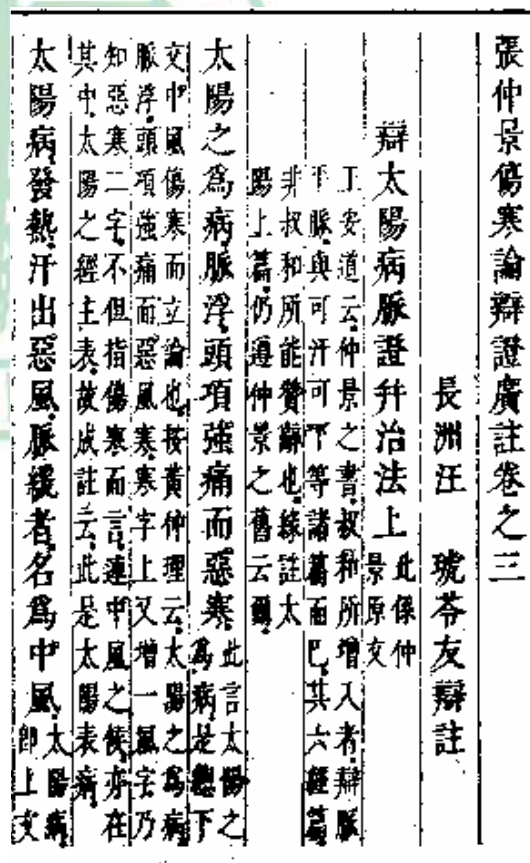 張仲景傷寒論辯證廣註卷之三
長洲汪　琥苓友辯註
辯太陽病脉證幷治法上此係仲景原文
王安道云仲景之書叔和所增入者辯脈
平脈與可汗可下等諸篇而巳其六經篇
非叔和所能贊辭也緣註太
陽上篇仍遵仲景之舊云爾
太陽之爲病脉浮頭項強痛而惡寒此言太陽之爲病是總下
文中風傷寒而立論也按黃仲理云太陽之爲病
脈浮頭項強痛而惡風寒寒字上又增一風字乃
知惡寒二字不但指傷寒而言連中風之候亦在
其中太陽之經主表故成註云此是太陽表病
太陽病發熱汗出惡風脉緩者名爲中風太陽病卽上文